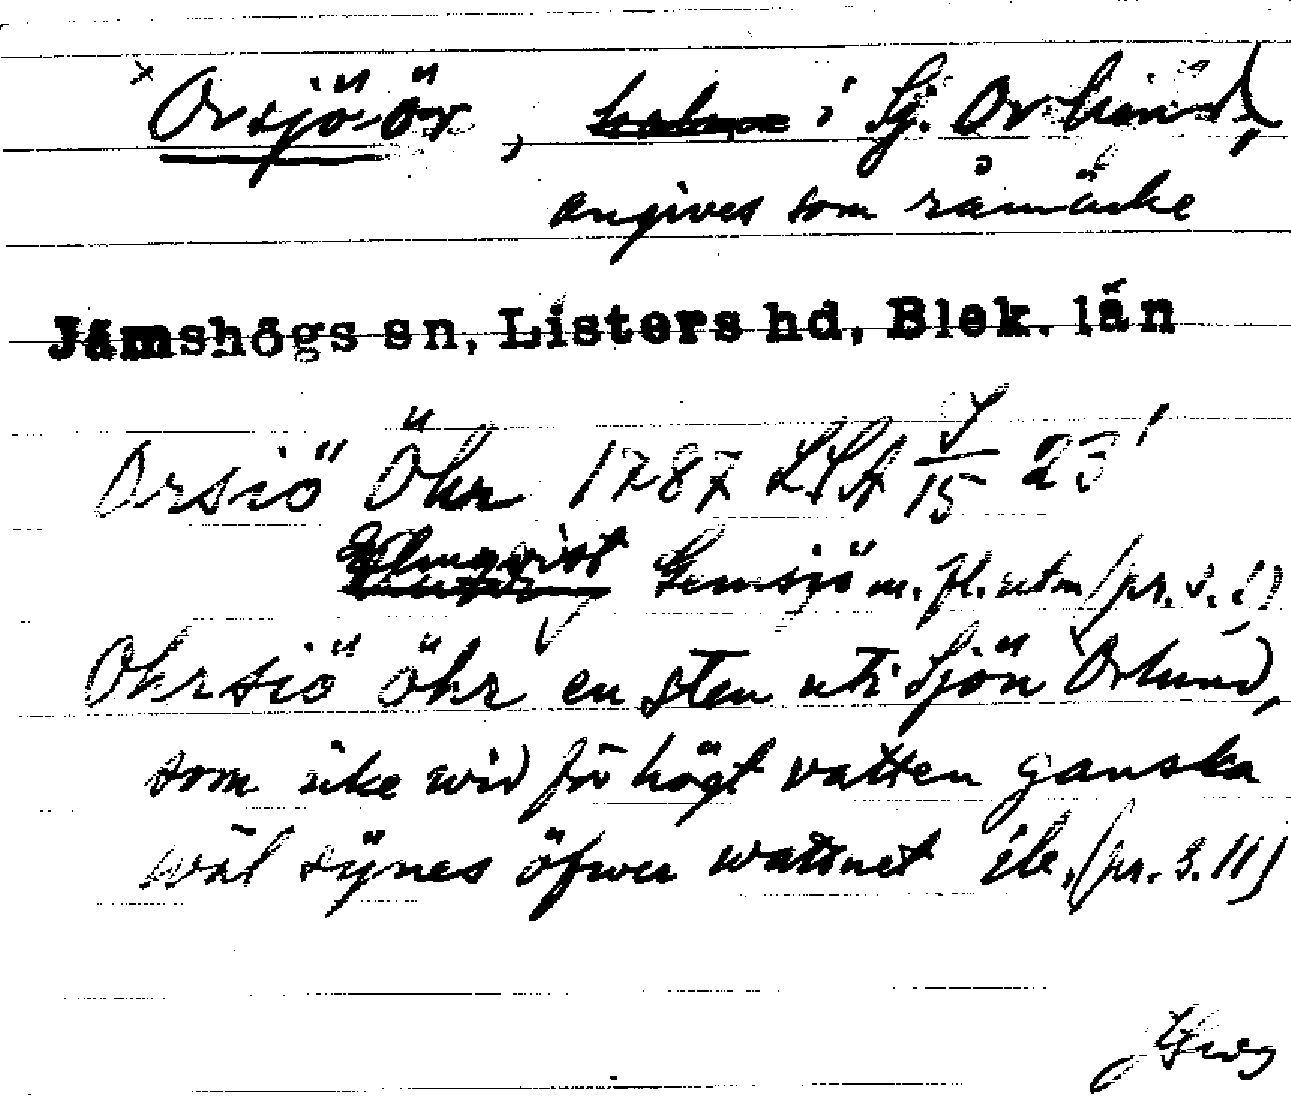 × Orsjö-ör, i Sj. Orlund,
angives som råmärke
Jämshögs sn, Listers hd, Blek. län
Orsiö Öhr 1787 LSA J/15 23¹
Gemsjö m. fl. utm (pr. s. 1)
Ohrsiö öhr en sten uti Sjön Orlund,
som icke wid för högt vatten ganska
wäl sÿnes öfwer wattnet ib. (pr. s. 11)